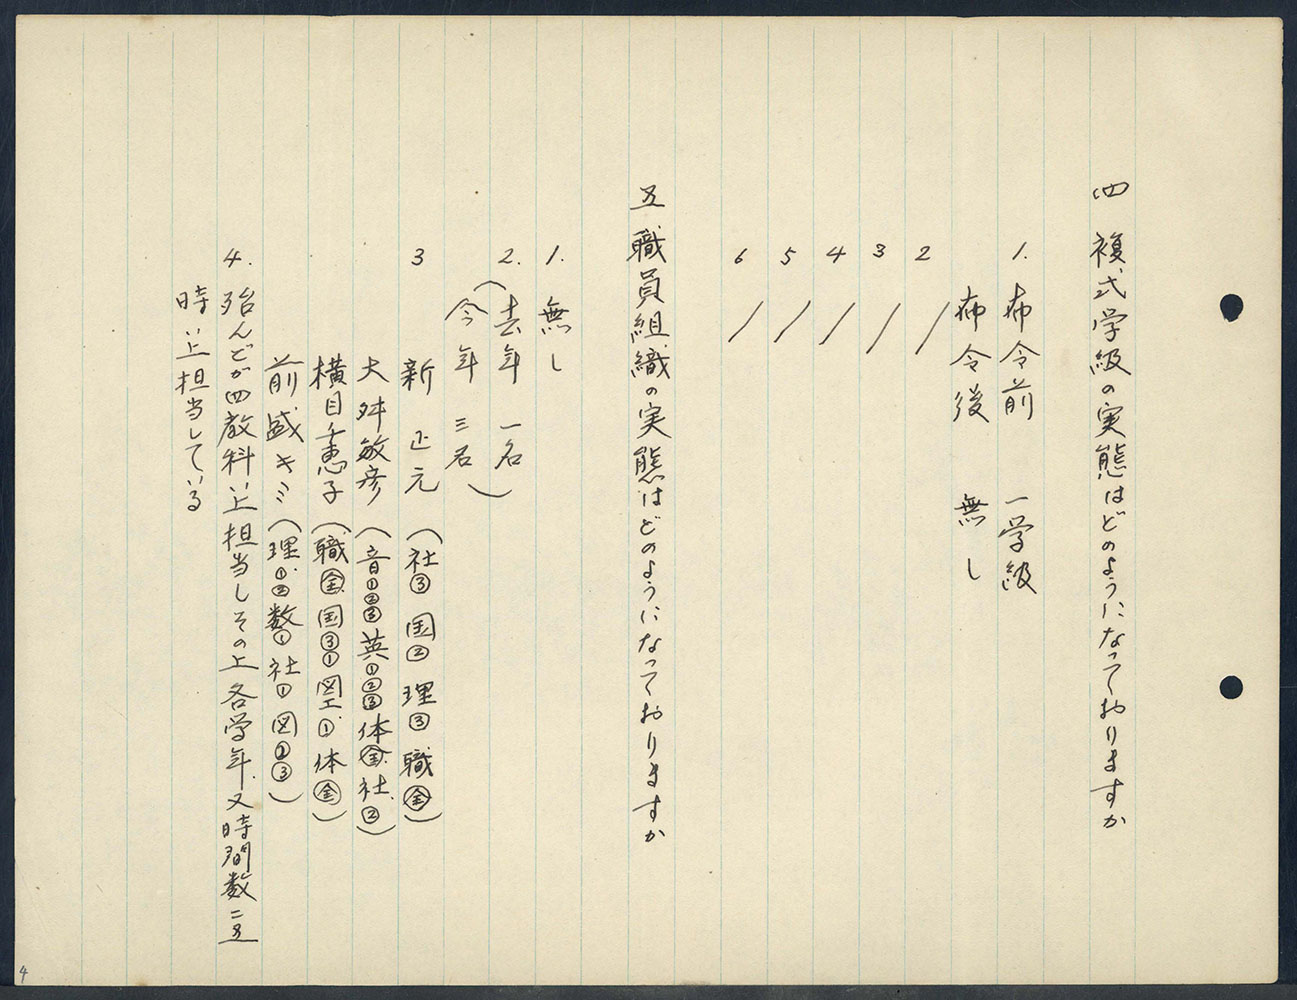 四 複式学級の実態はどのようになっておりますか
1. 布令前 一学級
布令後 無し
2 /
3 /
4 /
5 /
6 /
五 職員組織の実態はどのようになっておりますか
1. 無し
2. (去年 一名
今年 三名)
3 新 正元 (社③ 国② 理③ 職㊎)
大舛敏彦 (音①②③ 英①②③ 体㊎ 社②)
横目千恵子 (職㊎ 国③① 図工① 体㊎)
前盛キミ (理①② 数① 社① 図②③)
4. 殆んどが四教科以上担当しその上各学年、又時間数二五
時以上担当している
4